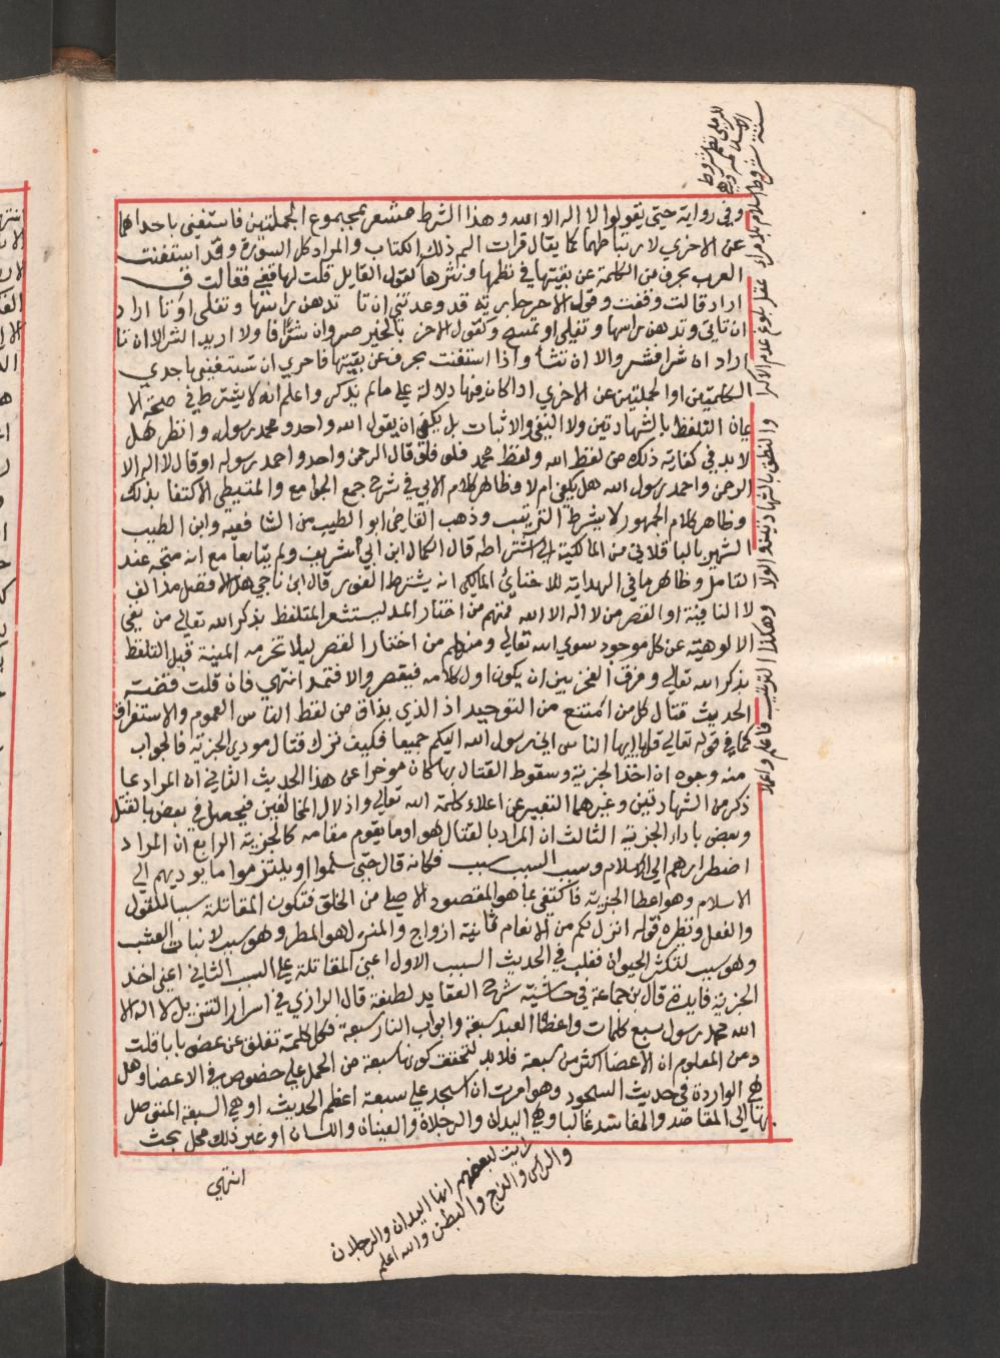 للرملي نظم شروط
الاسلام
ستة شروط اسلام بلا مراء عقل بلوغ عدم الاكراه
والنطق بالشهادتين والولا وهكذا الترتيب فاعلم واعملا
وفي رواية حتى يقولوا لا اله الا الله وهذا الشرط مشعر بمجموع الجملتين فاستغنى باحداهما
عن الاخرى لارتباطهما كما يقال قرات الم ذلك الكتاب والمراد كل السورة وقد استغنت
العرب بحرف من الكلمة عن بقيتها في نظمها ونثرها لقول القايل قلت لها قفي فقالت ق
اراد قالت وقفت وقول الاخر جارية قد وعدتني ان تا تدهن راسها وتفلى او تا اراد
ان تاتي وتدهن راسها وتفلى او تمسح وكقول الاخر بالخير خيرات وان شرا فا ولا اريد الشر الا ان تا
اراد ان شرا فشر والا ان تشا واذا استغنت بحرف عن بقيتها فاحرى ان تستغني باحدى
الكلمتين او الجملتين عن الاخرى اذا كان فيها دلالة على ما لم يذكر واعلم انه لا يشترط في صحة الا
يمان التلفظ بالشهادتين ولا النفي والاثبات بل يكفي ان يقول الله واحد ومحمد رسوله وانظر هل
لا بد في كفايته ذلك من لفظ الله ولفظ محمد فلو قال الرحمن واحد واحمد رسوله او قال لا اله الا
الرحمن واحمد رسول الله هل يكفي ام لا وظاهر كلام الابي في شرح جمع الجوامع الاكتفا بذلك
وظاهر كلام الجمهور لا يشترط الترتيب وذهب القاضي ابو الطيب من الشافعية وابن الطيب
الشهير بالباقلاني من المالكية الى اشتراطه قال الكمال ابن ابي شريف ولم يتابعا مع انه متجه عند
التامل وظاهر ما في الهداية للاخنائي المالكي انه يشترط الفور قال ابن ناجي هل الافضل مد الف
لا النافية او القصر من لا اله الا الله فمنهم من اختار المد ليستشعر المتلفظ بذكر الله تعالى من نفي
الالوهية عن كل موجود سوى الله تعالى ومنهم من اختار القصر ليلا تخترمه المنية قبل التلفظ
بذكر الله تعالى وفرق الفخر بين ان يكون اول كلامه فيقصر والا فتمد انتهى فان قلت قضية
الحديث قتال كل من امتنع من التوحيد اذ الذي يذاق من لفظ الناس العموم والاستغراق
كما في قوله تعالى قل يا ايها الناس اني رسول الله اليكم جميعا فكيف ترك قتال مودي الجزية فالجواب
منه وجوه ان اخذ الجزية وسقوط القتال بها كان موخرا عن هذا الحديث الثاني ان المراد بما
ذكر من الشهادتين وغيرهما التعبير عن اعلاء كلمة الله تعالى واذلال المخالفين فيحصل في بعض بالقتل
وبعض باداء الجزية الثالث ان المراد بالقتال هو او ما يقوم مقامه كالجزية الرابع ان المراد
اضطرارهم الى الاسلام وسبب السبب سبب فكانه قال حتى يسلموا او يلتزموا ما يوديهم الى
الاسلام وهو اعطا الجزية فاكتفى بما هو المقصود الاصلي من الخلق فتكون المقاتلة سببا للقول
والفعل ونظيره قوله انزل لكم من الانعام ثمانية ازواج والمنزل هو المطر وهو سبب لانبات العشب
وهو سبب لتكثر الحيوان فغلب في الحديث السبب الاول اعني المقاتلة على السبب الثاني اعني اخذ
الجزية فايدة قال بن جماعة في حاشية شرح العقايد لطيفة قال الرازي في اسرار التنزيل لا اله الا
الله محمد رسول سبع كلمات واعضا العبد سبعة وابواب النار سبعة فكل كلمة تغلق عن عضو بابا قلت
ومن المعلوم ان الاعضا اكثر من سبعة فلا بد لتحقق كونها سبعة من الحمل على خصوص في الاعضا وهل
هي الواردة في حديث السجود وهو امرت ان اسجد على سبعة اعظم الحديث او هي السبعة المتوصل
بها الى المقاصد والمفاسد غالبا وهي اليدان والرجلان والعينان واللسان او غير ذلك محل بحث
انتهى
رايت لبعضهم انها اليدان والرجلان
والراس والفرج والبطن والله اعلم